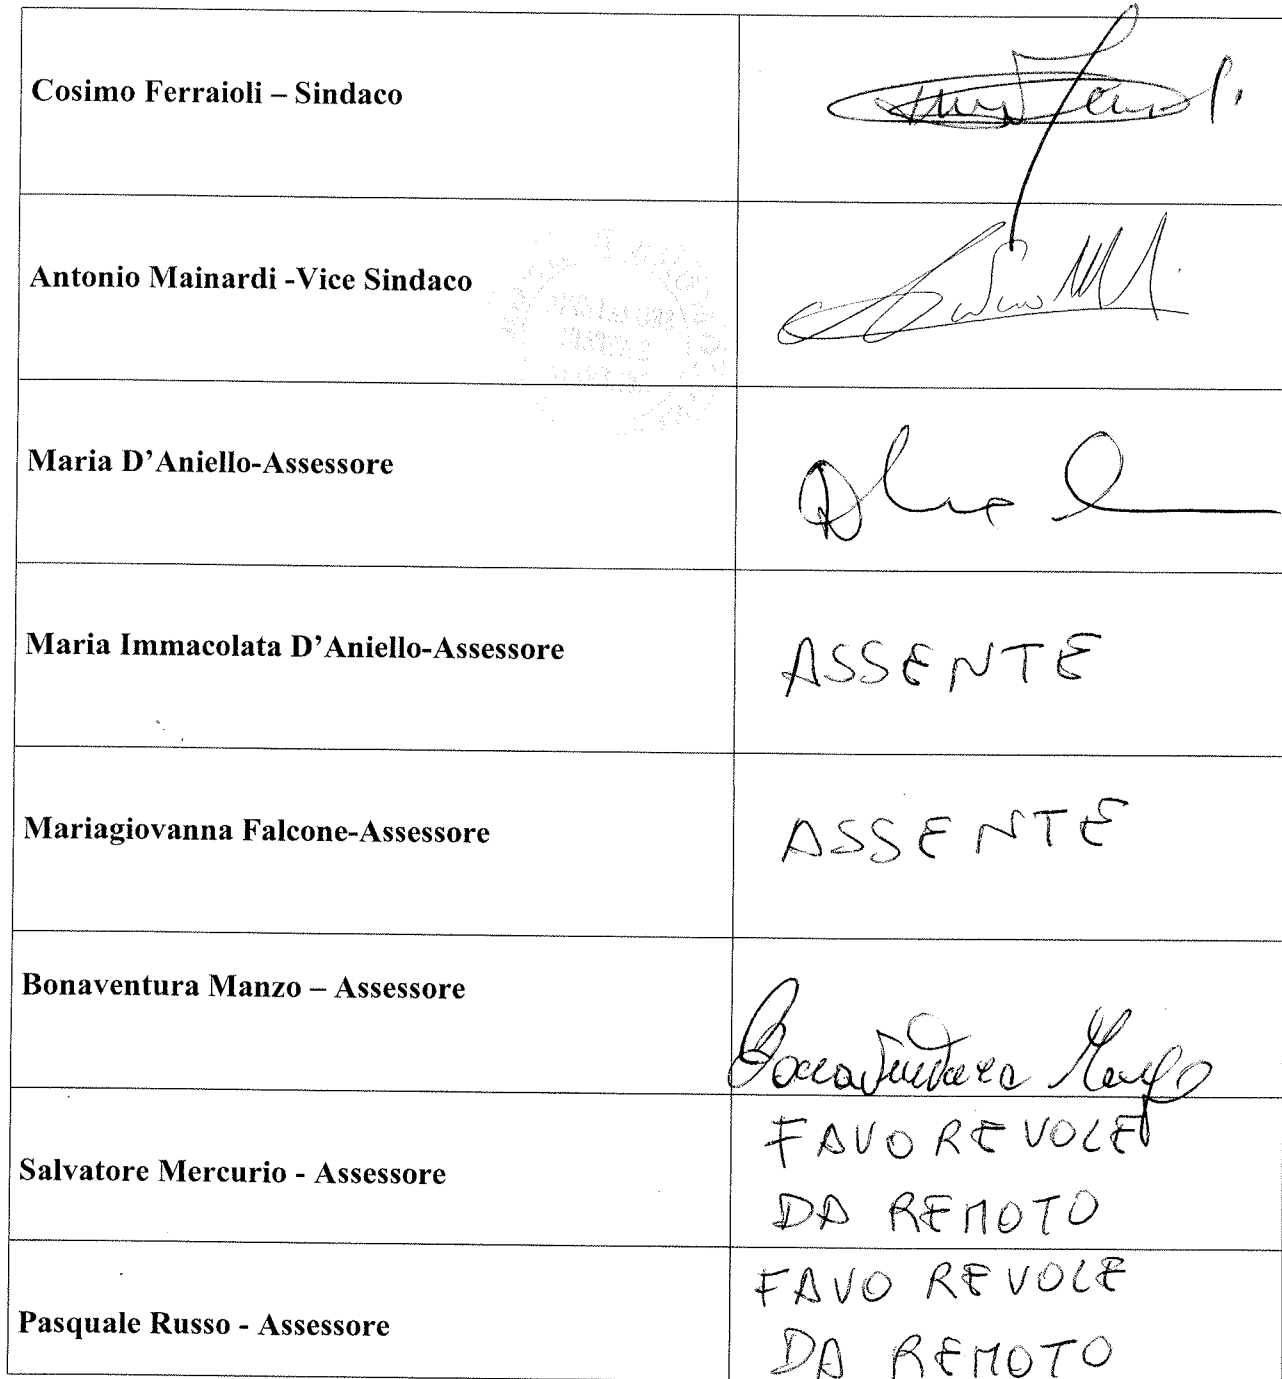 Cosimo Ferraioli – Sindaco
Antonio Mainardi -Vice Sindaco
Maria D’Aniello-Assessore
Maria Immacolata D’Aniello-Assessore
ASSENTE
Mariagiovanna Falcone-Assessore
ASSENTE
Bonaventura Manzo – Assessore
Bonaventura Manzo
FAVOREVOLE
Salvatore Mercurio - Assessore
DA REMOTO
FAVOREVOLE
Pasquale Russo - Assessore
DA REMOTO